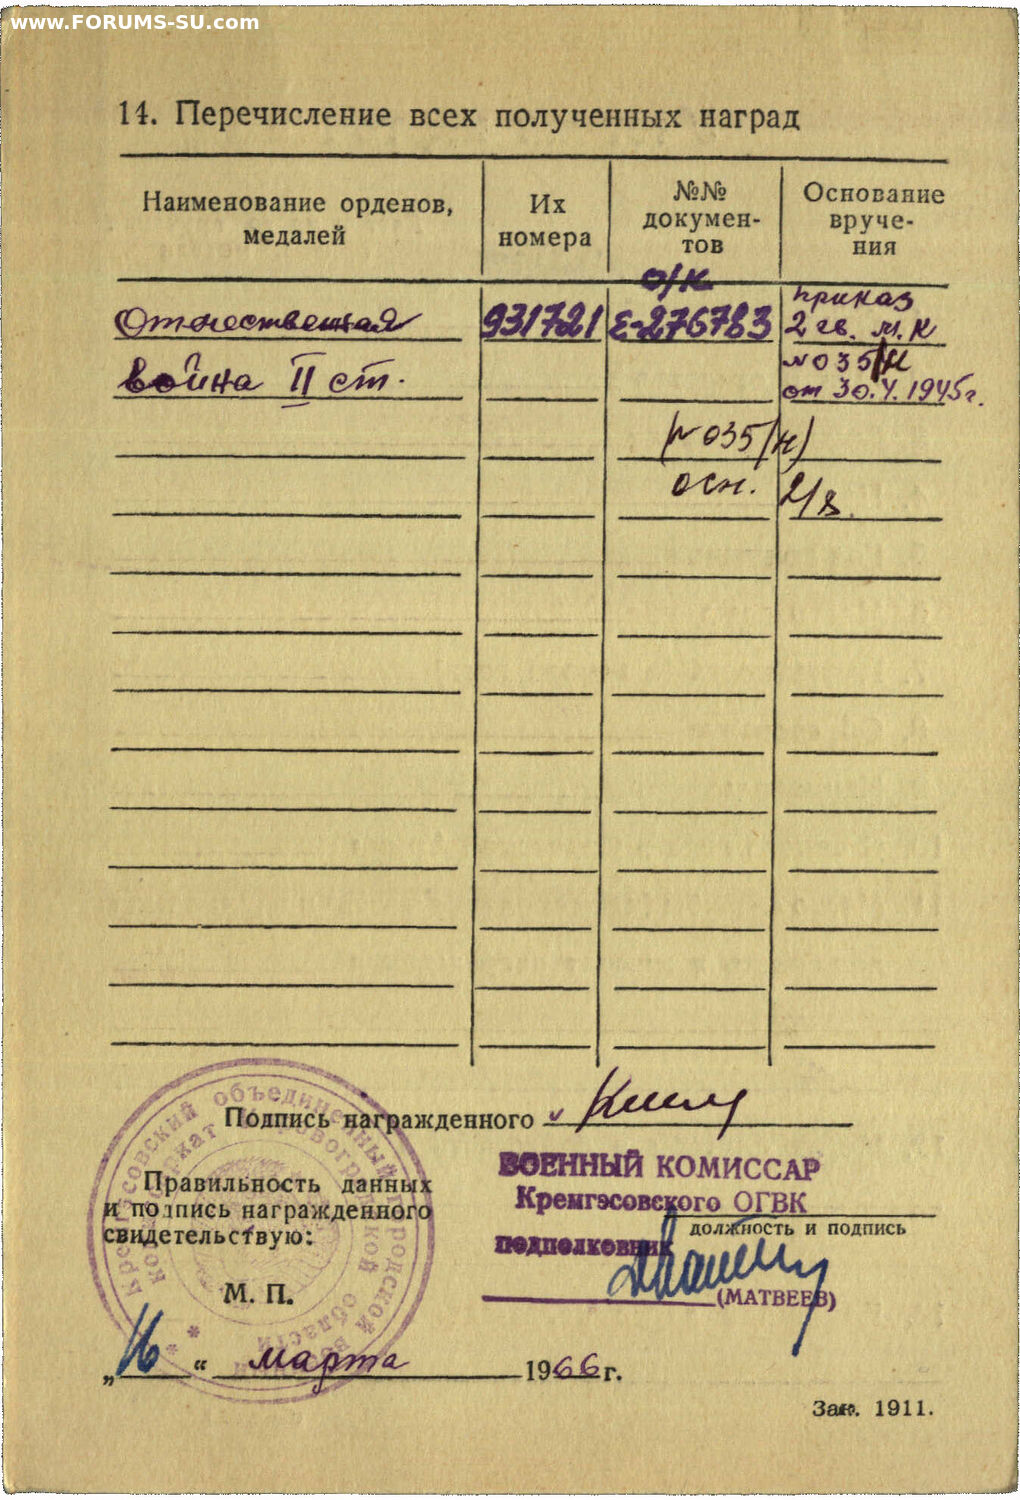 www.FORUMS-SU.com
14. Перечисление всех полученных наград
Наименование орденов, медалей
Их номера
№№ докумен-
тов
Основание
вруче-
ния
о/к
Отечественная 931721 Е-276783 приказ
2 гв. м. к
война II ст. №035/н
от 30.V.1945г.
(№035/н)
осн.
Подпись награжденного
ВОЕННЫЙ КОМИССАР
Кремгэсовского ОГВК
должность и подпись
подполковник
(МАТВЕЕВ)
Правильность данных
и подпись награжденного
свидетельствую:
М. П.
Кремгэсовский объединенный городской
области
„16“ марта 1966 г.
Зак. 1911.